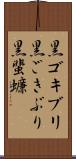 黒ゴキブリ
黒ごきぶり
黒蜚蠊